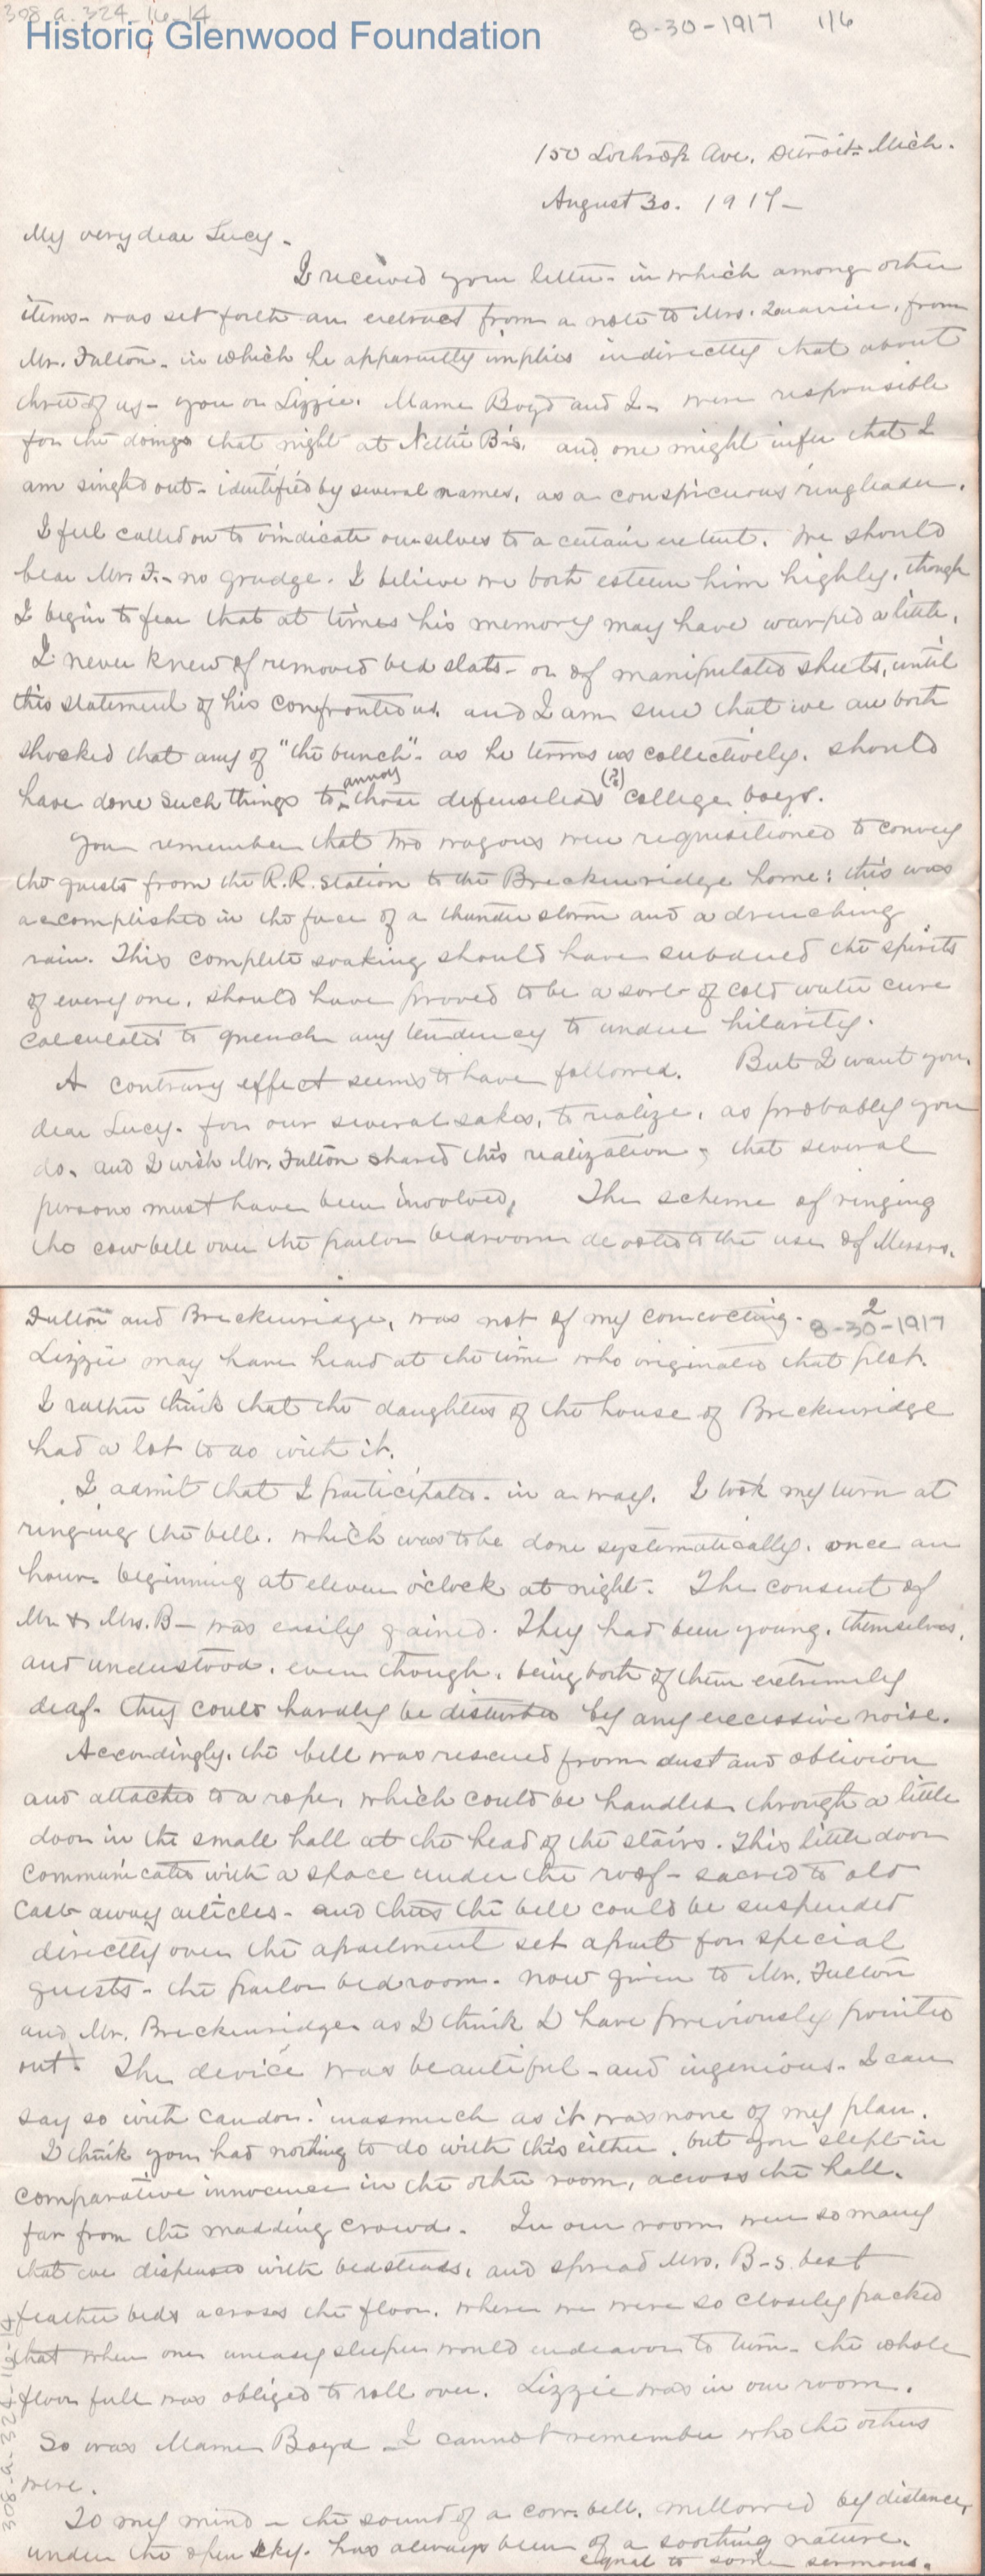 308 a. 324-16-14
Historic Glenwood Foundation
8-30-1917 1/6
150 Lothrop Ave. Detroit. Mich.
August 30. 1917-
My very dear Lucy-
I received your letter- in which among other
items- was set forth an extract from a note to Mrs. Quarrier, from
Mr. Fulton- in which he apparently implies indirectly that about
three of us- you or Lizzie. Mame Boyd and I- were responsible
for the doings that night at Nettie B's. and one might infer that I
am singled out- identified by several names, as a conspicuous ringleader.
I feel called on to vindicate ourselves to a certain extent. We should
bear Mr. F.- no grudge. I believe we both esteem him highly, though
I begin to fear that at times his memory may have warped a little.
I never knew of removed bed slats- or of manipulated sheets, until
this statement of his confronted us. and I am sure that we are both
shocked that any of "the bunch"- as he terms us collectively. should
have done such things to annoy those defenseless (?) college boys.
You remember that two wagons were requisitioned to convey
the guests from the R.R. station to the Breckinridge home: this was
accomplished in the face of a thunder storm and a drenching
rain. This complete soaking should have subdued the spirits
of every one. should have proved to be a sort of cold water cure
calculated to quench any tendency to undue hilarity.
A contrary effect seems to have followed. But I want you,
dear Lucy- for our several sakes, to realize, as probably you
do. and I wish Mr. Fulton shared this realization, that several
persons must have been involved, The scheme of ringing
the cowbell over the parlor bedroom devoted to the use of Messrs.
2
Fulton and Breckinridge, was not of my concocting. 8-30-1917
Lizzie may have heard at the time who originated that plot.
I rather think that the daughters of the house of Breckinridge
had a lot to do with it.
I admit that I participated- in a way. I took my turn at
ringing the bell. which was to be done systematically. once an
hour- beginning at eleven o'clock at night. The consent of
Mr & Mrs. B- was easily gained. They had been young, themselves,
and understood. even though. being both of them extremely
deaf- they could hardly be disturbed by any excessive noise.
Accordingly. the bell was rescued from dust and oblivion
and attached to a rope, which could be handled through a little
door in the small hall at the head of the stairs. This little door
communicated with a space under the roof- sacred to old
cast away articles- and thus the bell could be suspended
directly over the apartment set apart for special
guests- the parlor bedroom. now given to Mr. Fulton
and Mr. Breckinridge as I think I have previously pointed
out. The device was beautiful- and ingenious- I can
say so with candor! inasmuch as it was none of my plan.
I think you had nothing to do with this either. but you slept in
comparative innocence in the other room, across the hall.
far from the madding crowd. In our room were so many
that we dispensed with bedsteads, and spread Mrs. B-s. best
feather beds across the floor. where we were so closely packed
that when one uneasy sleeper would endeavor to turn- the whole
floor full was obliged to roll over. Lizzie was in our room.
So was Mame Boyd- I cannot remember who the others
were.
To my mind- the sound of a cow bell. mellowed by distance,
under the open sky. has always been of a soothing nature.
equal to some sermons.
308-a-324-16-14